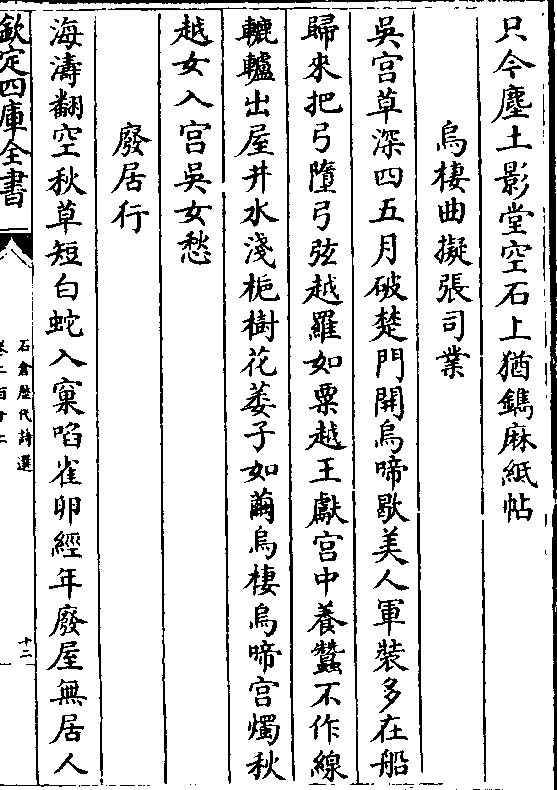 只今塵土影堂空石上猶鐫麻紙帖
烏棲曲擬張司業
吳宫草深四五月破楚門開烏啼歇美人軍裝多在船
歸來把弓墮弓弦越羅如粟越王獻宫中養蠶不作線
轆轤出屋井水淺梔樹花萎子如繭烏棲烏啼宫燭秋
越女入宫吳女愁
廢居行
海濤翻空秋草短白蛇入窠啗雀卵經年廢屋無居人
欽定四庫全書
石倉歷代詩選
十二